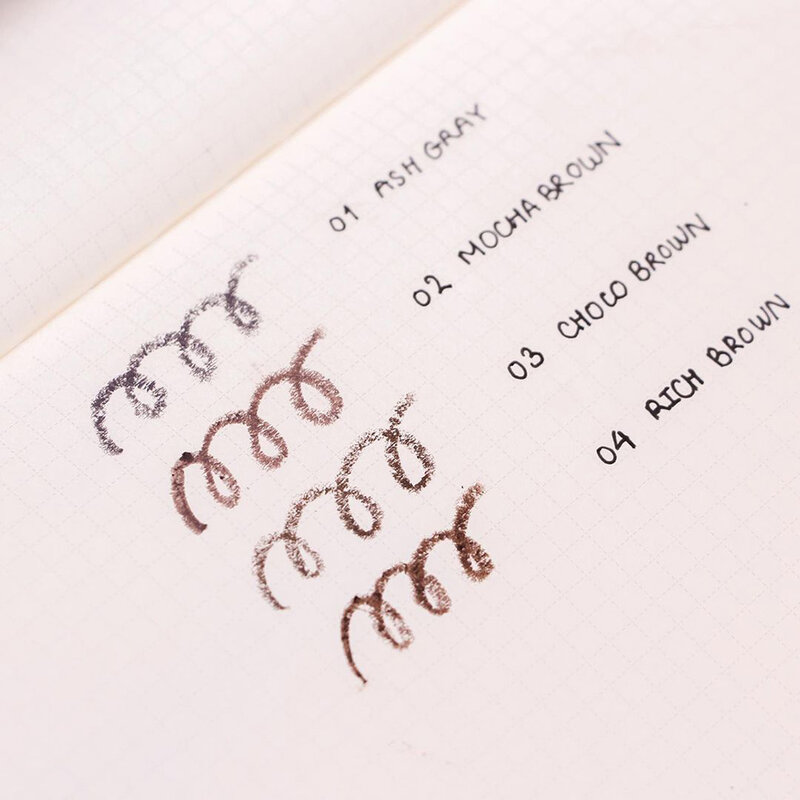 01 ASH GRAY
02 MOCHA BROWN
03 CHOCO BROWN
04 RICH BROWN